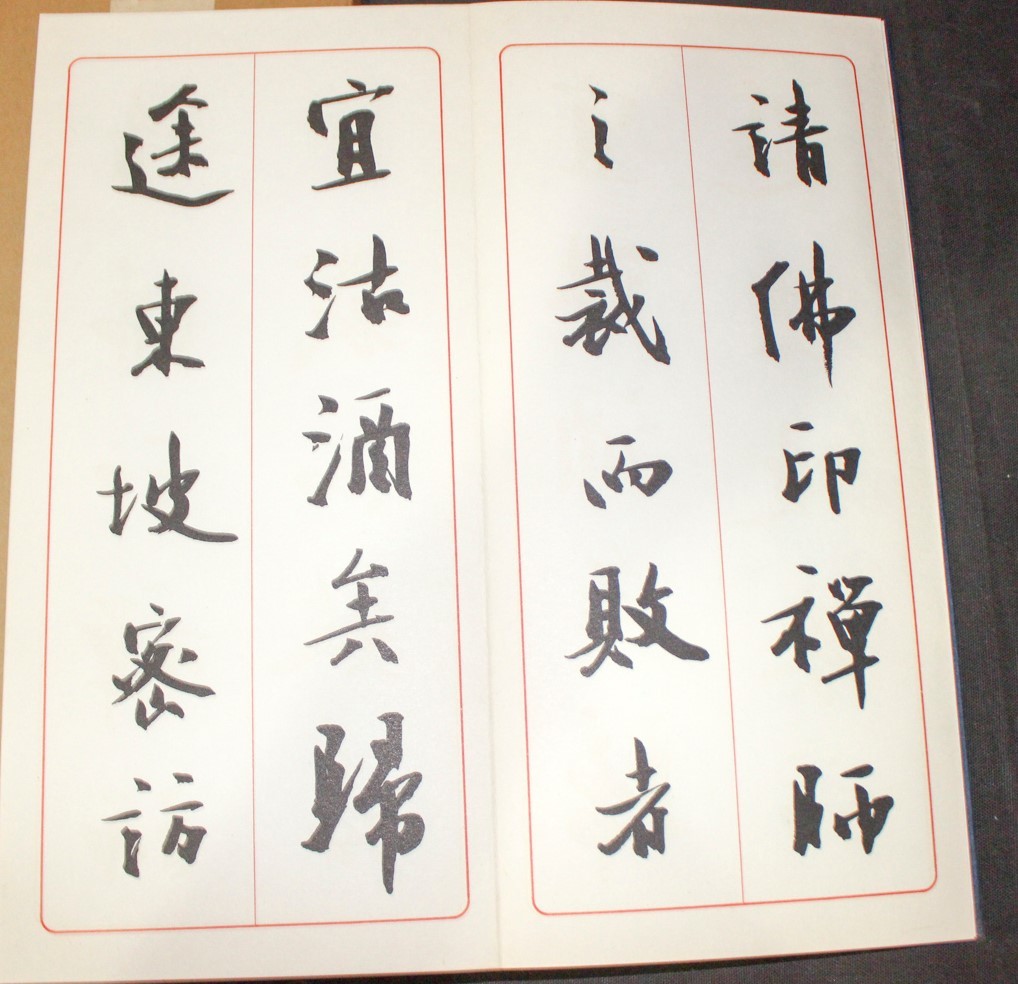 請佛印禪師
之裁而敗者
宜沽酒矣歸
途東坡密訪